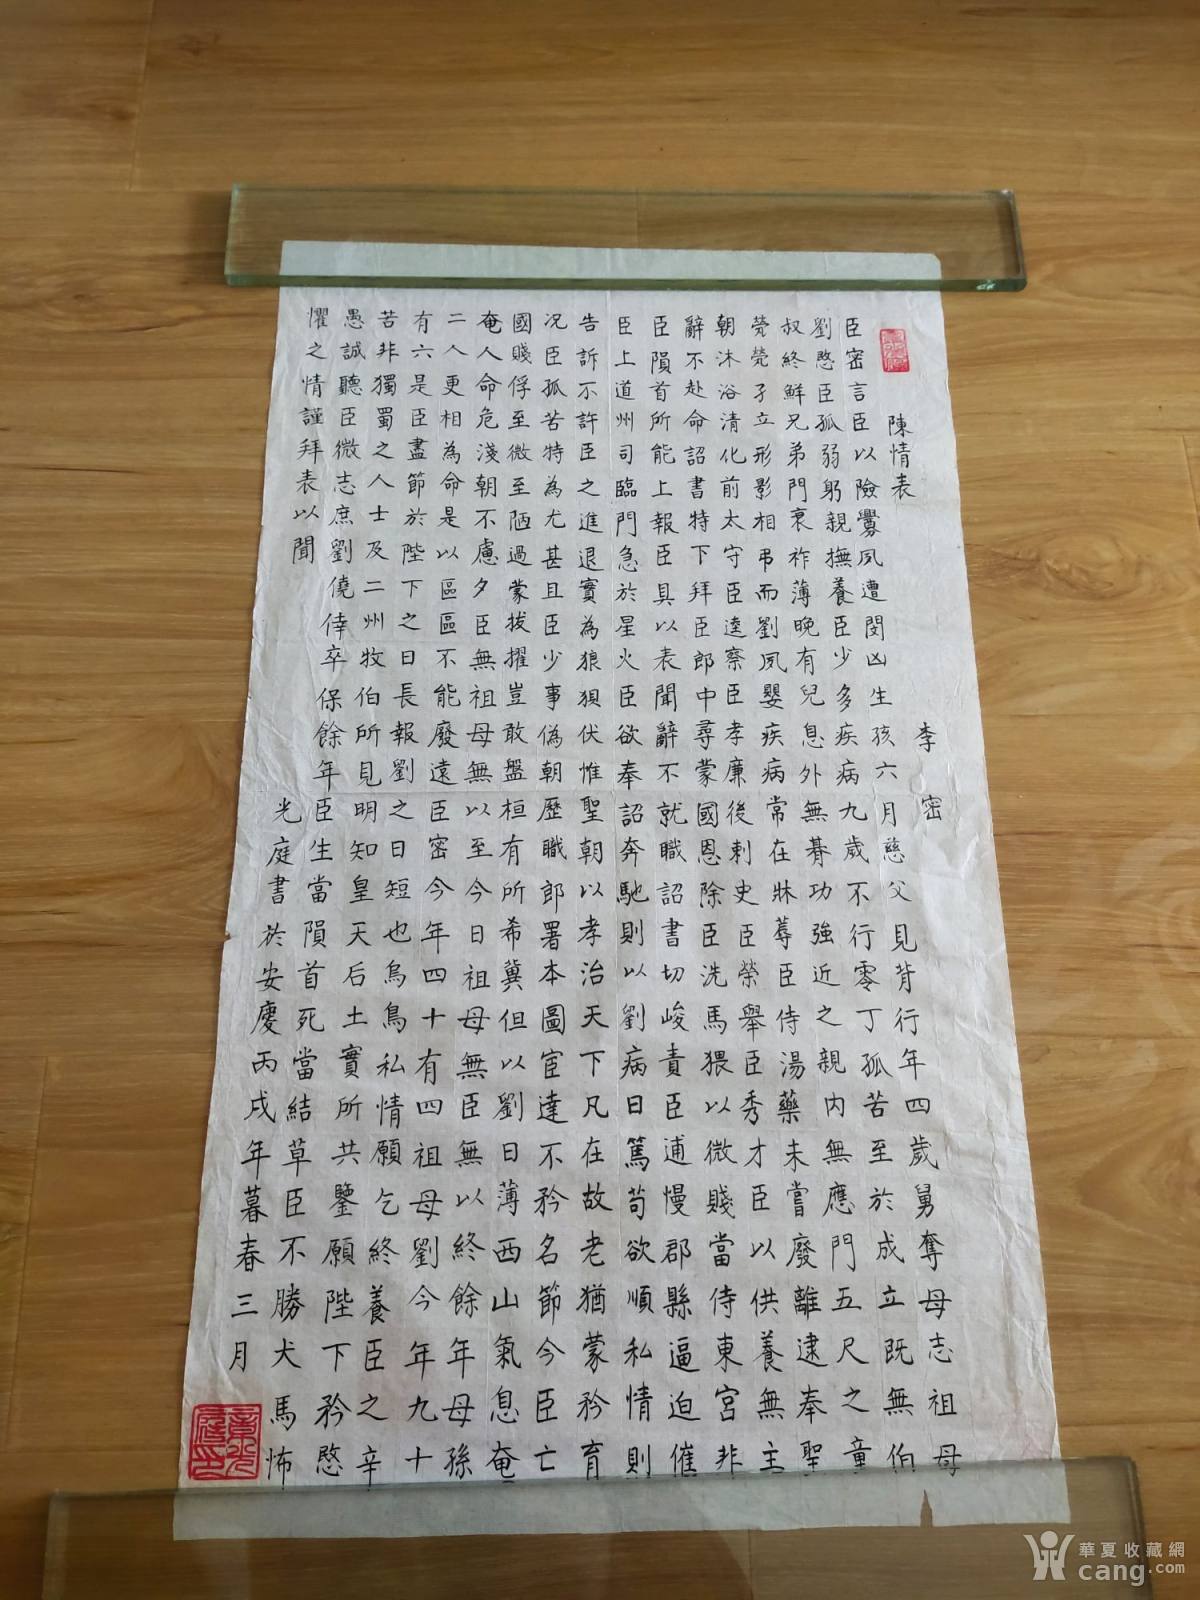 陳情表 李密
臣密言臣以險釁夙遭閔凶生孩六月慈父見背行年四歲舅奪母志祖母
劉愍臣孤弱躬親撫養臣少多疾病九歲不行零丁孤苦至於成立既無伯
叔終鮮兄弟門衰祚薄晚有兒息外無朞功強近之親內無應門五尺之童
煢煢孑立形影相弔而劉夙嬰疾病常在牀蓐臣侍湯藥未嘗廢離逮奉聖
朝沐浴清化前太守臣逵察臣孝廉後刺史臣榮舉臣秀才臣以供養無主
辭不赴命詔書特下拜臣郎中尋蒙國恩除臣洗馬猥以微賤當侍東宮非
臣隕首所能上報臣具以表聞辭不就職詔書切峻責臣逋慢郡縣逼迫催
臣上道州司臨門急於星火臣欲奉詔奔馳則以劉病日篤苟欲順私情則
告訴不許臣之進退實為狼狽伏惟聖朝以孝治天下凡在故老猶蒙矜育
况臣孤苦特為尤甚且臣少事偽朝歷職郎署本圖宦達不矜名節今臣亡
國賤俘至微至陋過蒙拔擢豈敢盤桓有所希冀但以劉日薄西山氣息奄
奄人命危淺朝不慮夕臣無祖母無以至今日祖母無臣無以終餘年母孫
二人更相為命是以區區不能廢遠臣密今年四十有四祖母劉今年九十
有六是臣盡節於陛下之日長報劉之日短也烏鳥私情願乞終養臣之辛
苦非獨蜀之人士及二州牧伯所見明知皇天后土實所共鑒願陛下矜愍
愚誠聽臣微志庶劉僥倖卒保餘年臣生當隕首死當結草臣不勝犬馬怖
懼之情謹拜表以聞 光庭書於安慶丙戌年暮春三月
華夏收藏網
cang.com